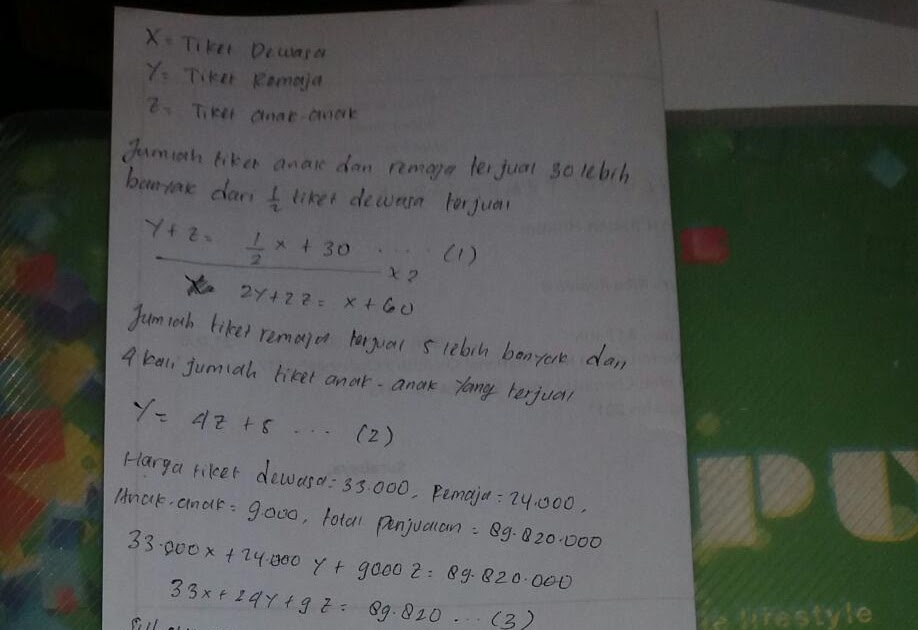 X = Tiket Dewasa
Y = Tiket Remaja
Z = Tiket anak-anak
Jumlah tiket anak dan remaja terjual 30 lebih
banyak dari 1/2 tiket dewasa terjual
Y + z = 1/2 x + 30 .... (1)
x 2
2Y + 2z = x + 60
Jumlah tiket remaja terjual 5 lebih banyak dari
4 kali jumlah tiket anak-anak yang terjual
Y = 4z + 5 ... (2)
Harga tiket dewasa = 33.000, Remaja = 24.000,
Anak-anak = 9.000, total Penjualan = 89.820.000
33.000x + 24.000 Y + 9000 z = 89.820.000
33x + 24Y + 9z = 89.820 ... (3)
PU
lifestyle